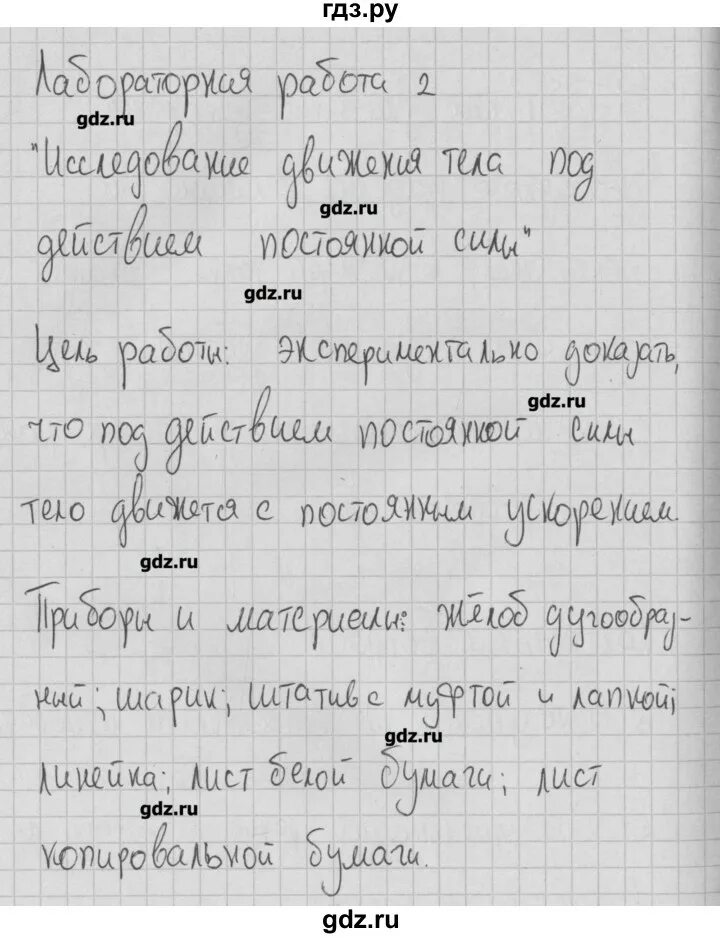 гдз.ру
Лабораторная работа 2
gdz.ru
"Исследование движения тела под
gdz.ru
действием постоянной силы"
gdz.ru
Цель работы: экспериментально доказать,
gdz.ru
что под действием постоянной силы
тело движется с постоянным ускорением.
gdz.ru
Приборы и материалы: жёлоб дугообраз-
ный; шарик; штатив с муфтой и лапкой;
gdz.ru
линейка; лист белой бумаги; лист
gdz.ru
копировальной бумаги.
gdz.ru